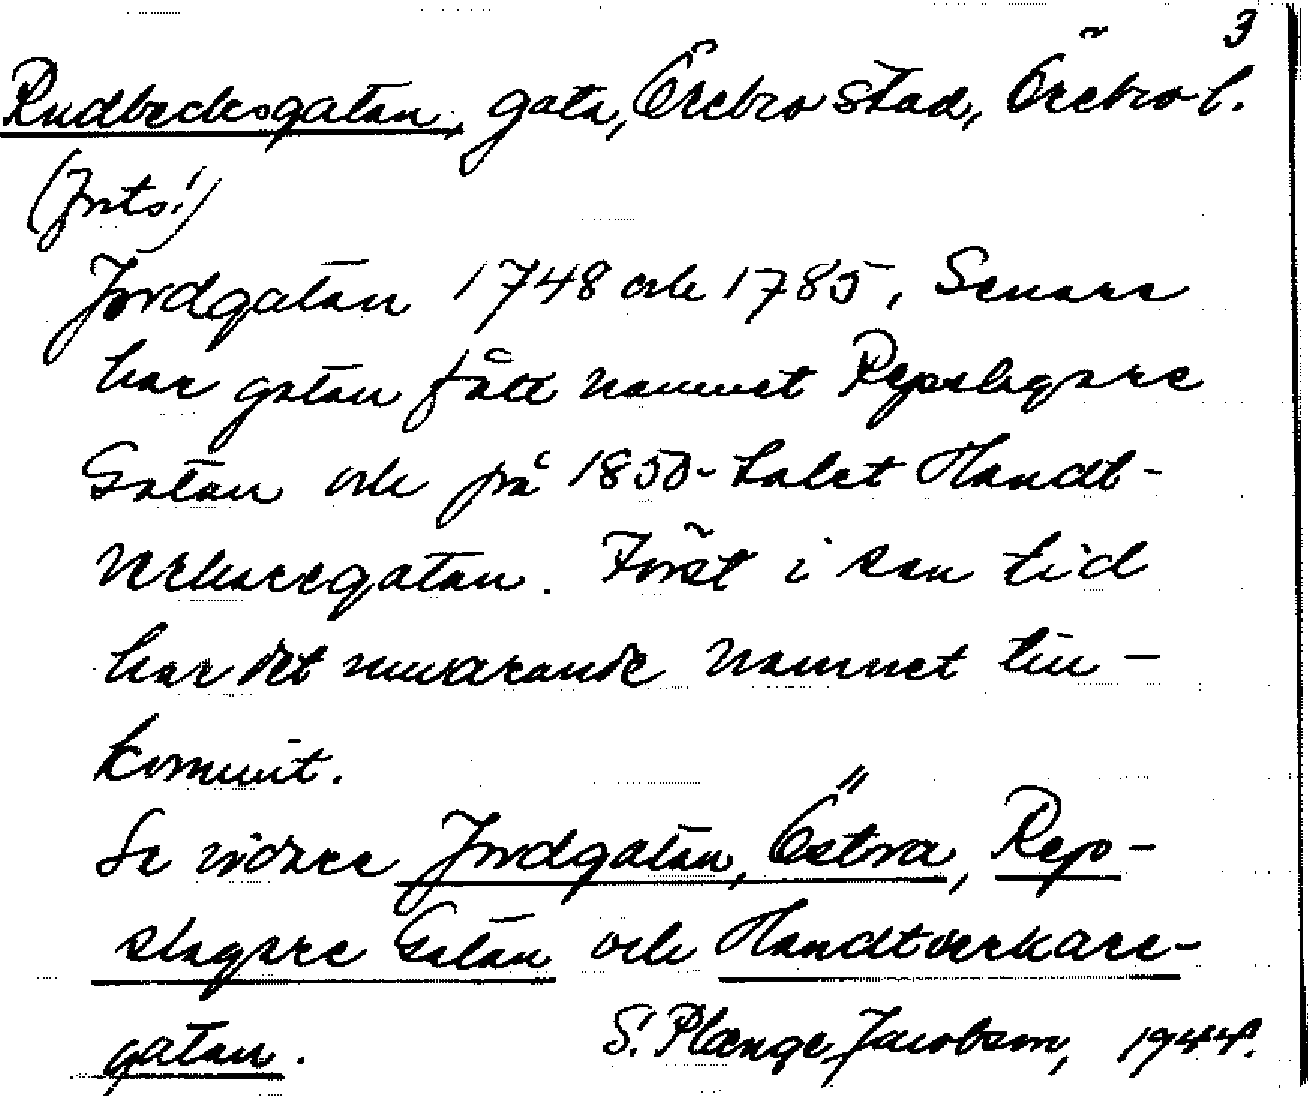 3
Rudbecksgatan, gata, Örebro stad, Örebro l.
(forts.)
Jordgatan 1748 och 1785, Senare
har gatan fått namnet Repslagare
Gatan och på 1850-talet Handt-
verkaregatan. Först i sen tid
har det nuvarande namnet till-
kommit.
Se vidare Jordgatan, Östra, Rep-
slagare Gatan och Handtverkare-
gatan.
S. Plænge Jacobson, 1944.